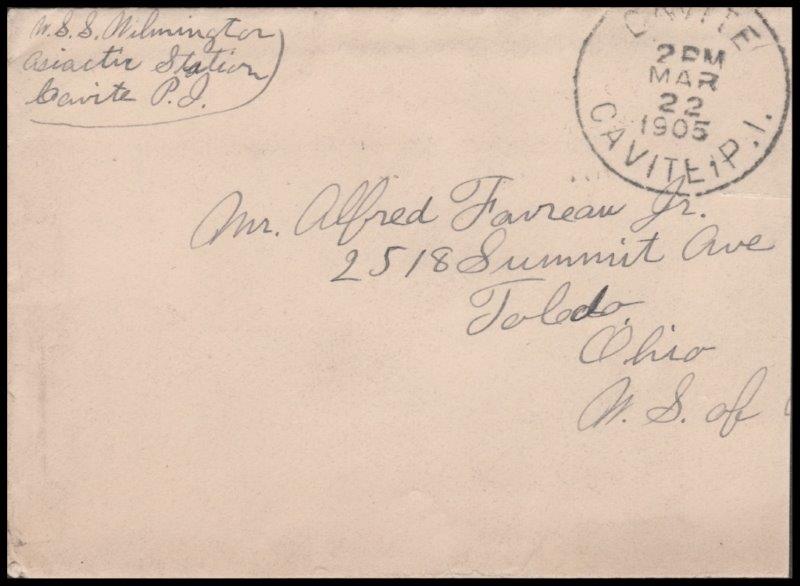 U.S.S. Wilmington
Asiactic Station
Cavite P.I.
CAVITE
2 PM
MAR
22
1905
CAVITE, P.I.
Mr. Alfred Favreau Jr.
2518 Summit Ave
Toledo
Ohio
U. S. of